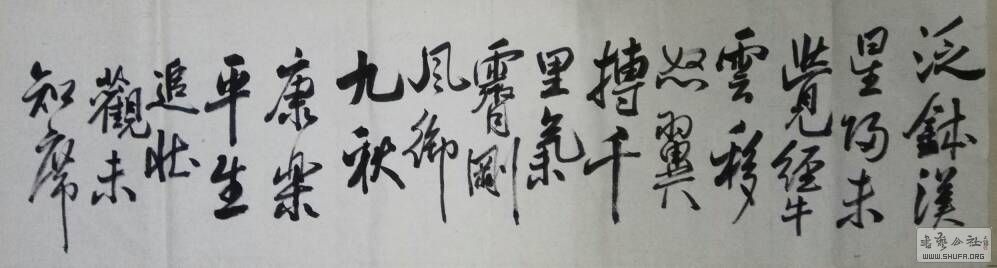 泛鉢漢
星歸未
覺經牛
雲移
怒翼
搏千
里氣
霽剛
風御
九秋
康樂
平生
追壯
觀未
知席
书艺公社
WWW.SHUFA.ORG